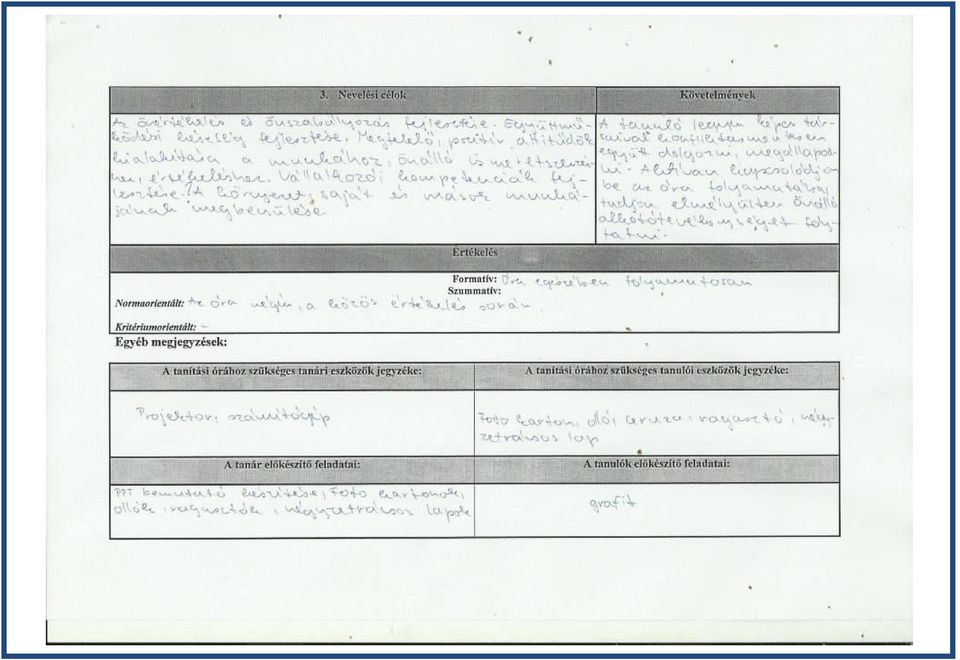 3. Nevelési célok
Követelmények
Az önértékelés és önszabályozás fejlesztése. Együttmű-
ködési készség fejlesztése. Megfelelő, pozitív attitűdök
kialakítása a munkához, önálló ismeretszerzés-
hez, értékeléshez. Vállalkozói kompetenciák fej-
lesztése. A környezet, saját és mások munká-
jának megbecsülése
A tanuló legyen képes tár-
saival konfliktusmentesen
együtt dolgozni, megállapod-
ni. Aktívan kapcsolódjon
be az óra folyamatába,
tudjon elmélyülten önálló
alkotótevékenységet foly-
tatni.
Értékelés
Formatív: Óra egészében folyamatosan
Szummatív:
Normaorientált: Az óra végén, a közös értékelés során.
Kritériumorientált: –
Egyéb megjegyzések:
A tanítási órához szükséges tanári eszközök jegyzéke:
A tanítási órához szükséges tanulói eszközök jegyzéke:
Projektor, számítógép
Foto karton, olló, ceruza, ragasztó, négy-
zetrácsos lap
A tanár előkészítő feladatai:
A tanulók előkészítő feladatai:
PPT bemutató készítése, Foto kartonok,
ollók, ragasztók, négyzetrácsos lapok
grafit